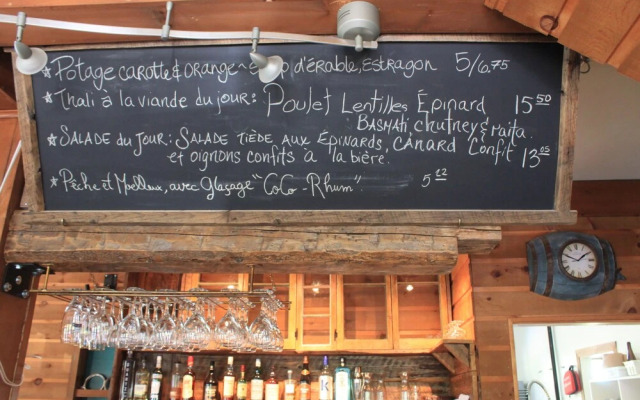 * Potage carotte & orange ~ d'érable, Estragon 5/6.75
* Thali à la viande du jour: Poulet Lentilles Épinard 15 50
Basmati, chutney & Raita.
* Salade du jour: Salade tiède aux épinards, canard confit 13 05
et oignons confits à la bière.
* Pêche et Moelleux, avec glaçage "CoCo-Rhum". 5 12